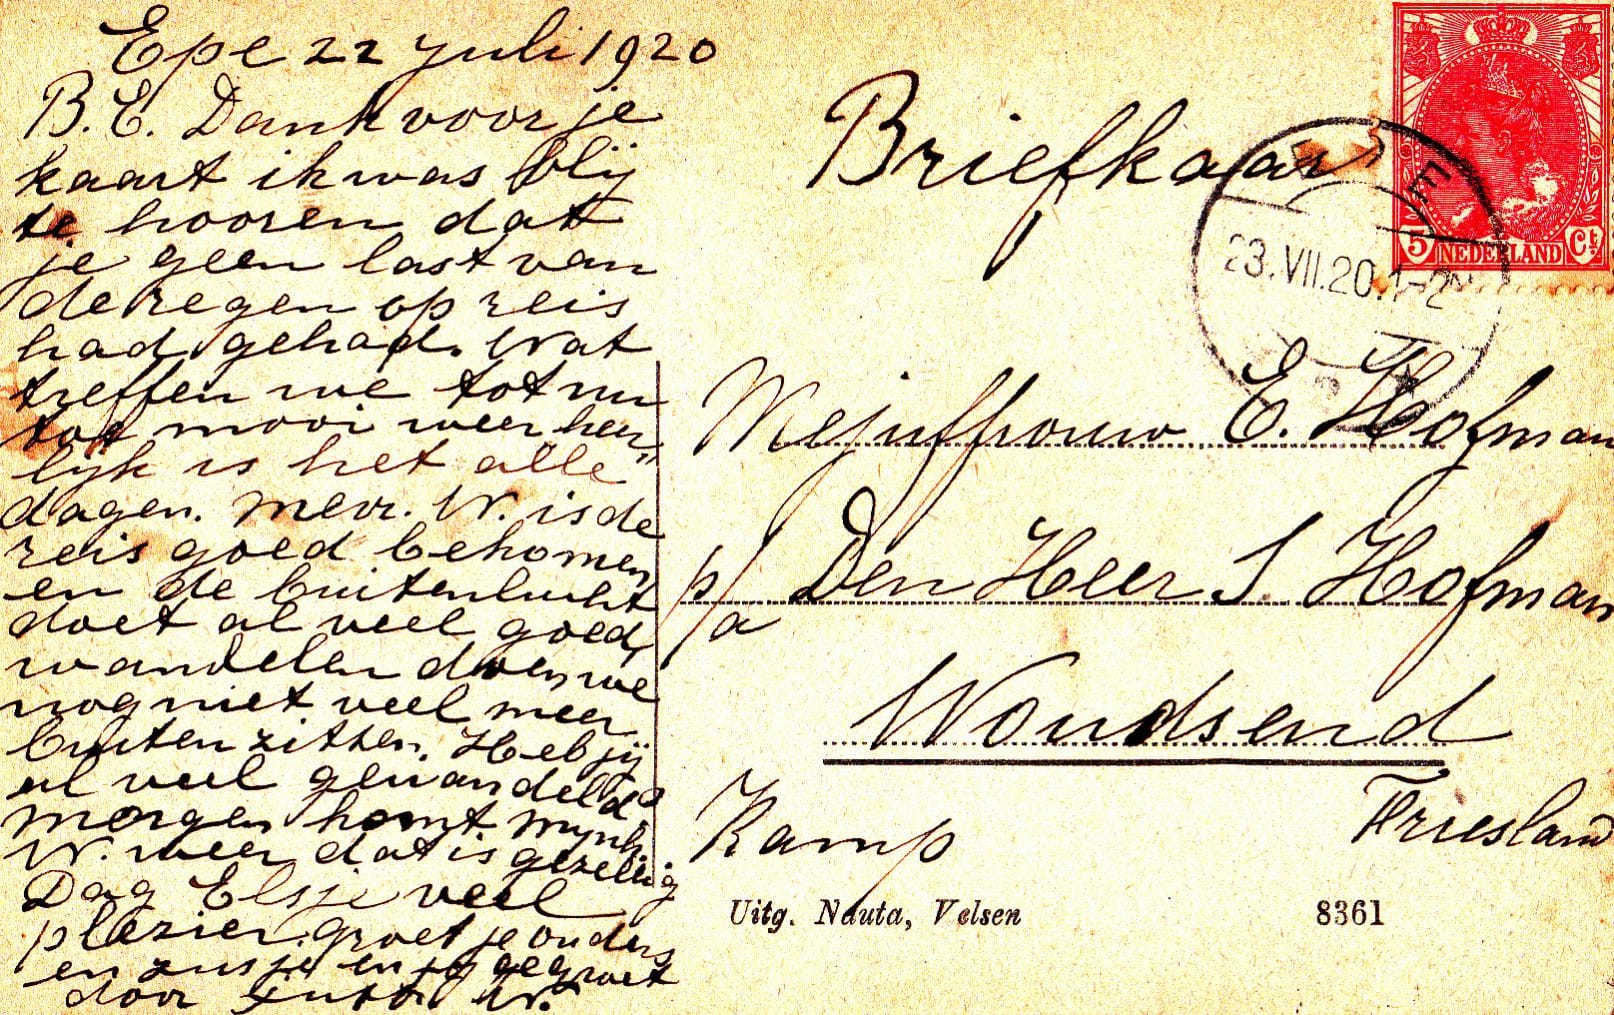 Epe 22 juli 1920
B.E. Dank voor je
kaart ik was blij
te hooren dat
je geen last van
de regen op reis
had gehad. Wat
treffen we tot nu
tot mooi weer heer
lijk is het alle"
dagen. Mevr. W. is de
reis goed bekomen
en de buitenlucht
doet al veel goed,
wandelen doen we
nog niet veel meer
buiten zitten. Heb jij
al veel gewandeld?
morgen komt Mijnh.
W. weer dat is gezellig
Dag Elsje veel
plezier, groet je ouders
en zusje en jij gegroet
door W.
Briefkaart
5 NEDERLAND Ct
EPE
23.VII.20.1-2N
Mejuffrouw E. Hofman
p/a Den Heer S. Hofman
Woudsend
Kamp
Friesland
Uitg. Nauta, Velsen
8361